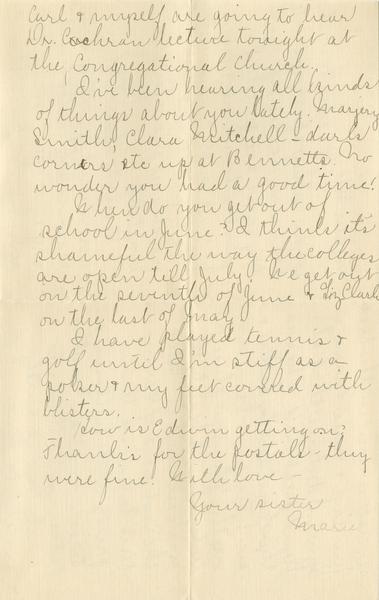 Carl & myself are going to hear
Dr. Cochran lecture tonight at
the Congregational Church.
I've been hearing all kinds
of things about you lately. Margery
Smith, Clara Mitchell - dark
corners, etc up at Bennetts. No
wonder you had a good time!
When do you get out of
school in June? I think it's
shameful the way the colleges
are open till July. We get out
on the seventh of June &
on the last of May.
I have played tennis &
golf until I'm stiff as a
poker & my feet covered with
blisters.
How is Edwin getting on?
Thanks for the postals - they
were fine. With love -
Your sister
Marie